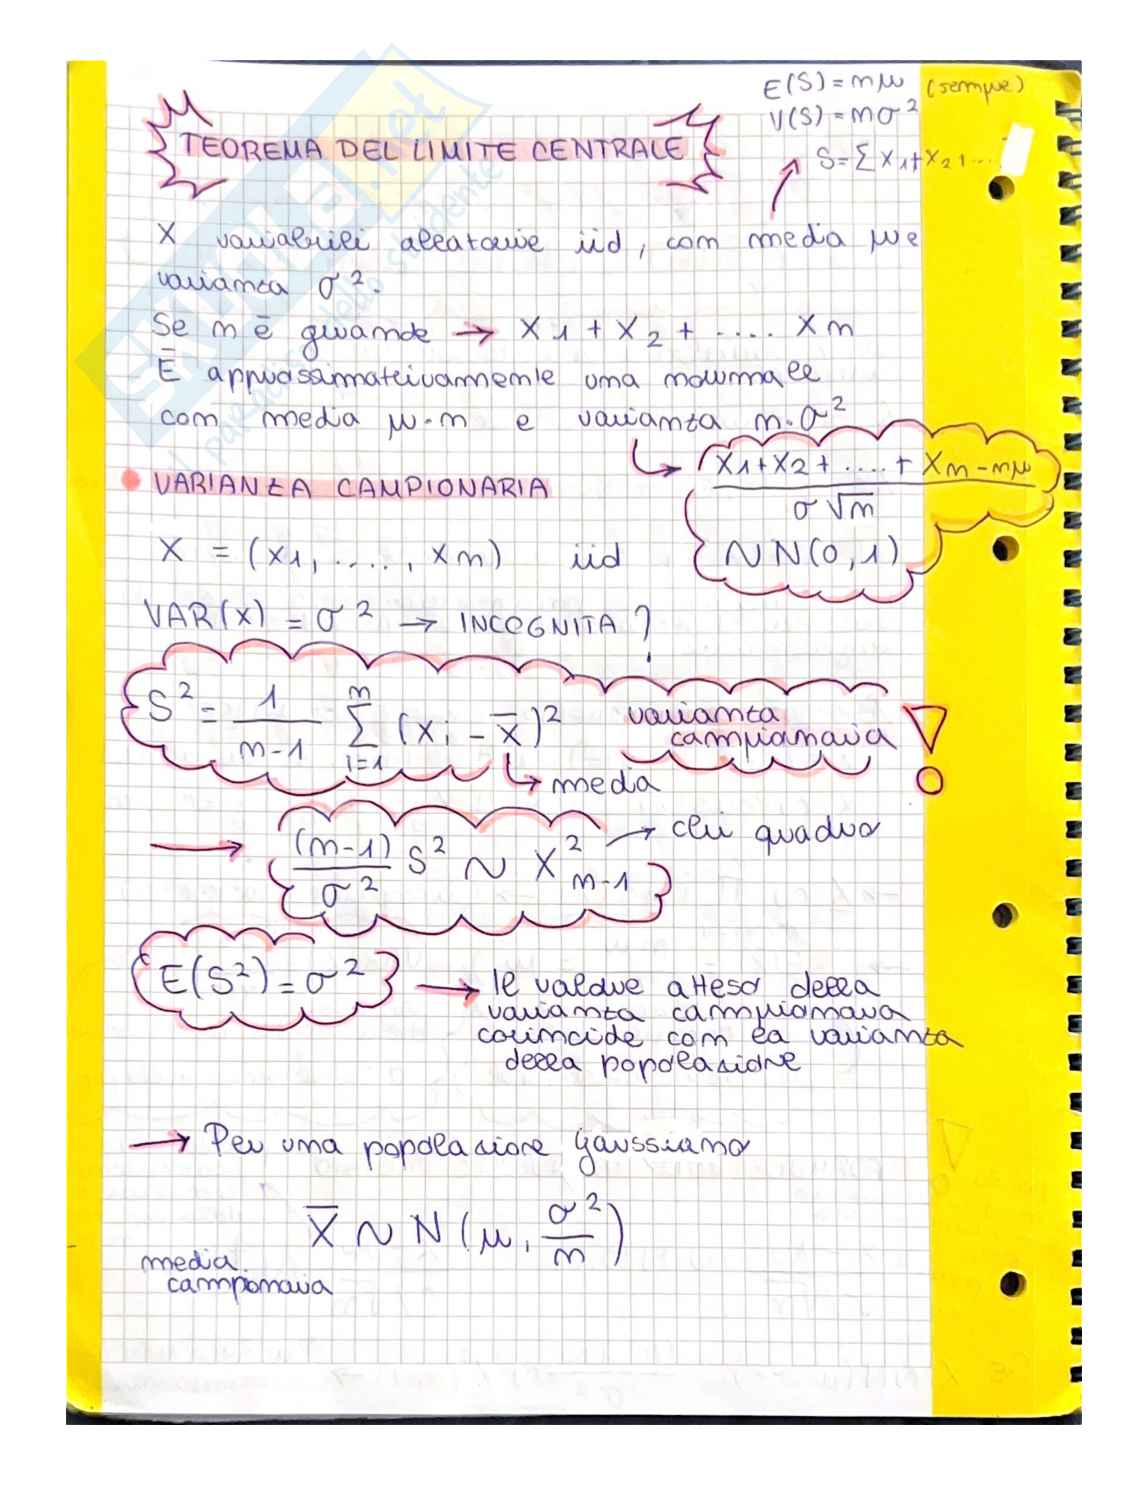 E(S) = nμ (sempre)
V(S) = nσ²
TEOREMA DEL LIMITE CENTRALE
S = ∑ X1 + X2 + ...
X variabili aleatorie iid, con media μ e
varianza σ².
Se n è grande → X1 + X2 + .... Xn
È approssimativamente una normale
con media μ·n e varianza n·σ²
X1 + X2 + .... + Xn - nμ
σ √n
~ N(0,1)
• VARIANZA CAMPIONARIA
X = (X1, ....., Xn) iid
VAR(X) = σ² → INCOGNITA ?
S² = 1/(n-1) ∑ i=1 n (Xi - X̄)² varianza
campionaria !
↳ media
→ (n-1)/σ² S² ~ X² n-1 → chi quadro
E(S²) = σ² → Il valore atteso della
varianza campionaria
coincide con la varianza
della popolazione
→ Per una popolazione gaussiana
X̄ ~ N(μ, σ²/n)
media
camponaria